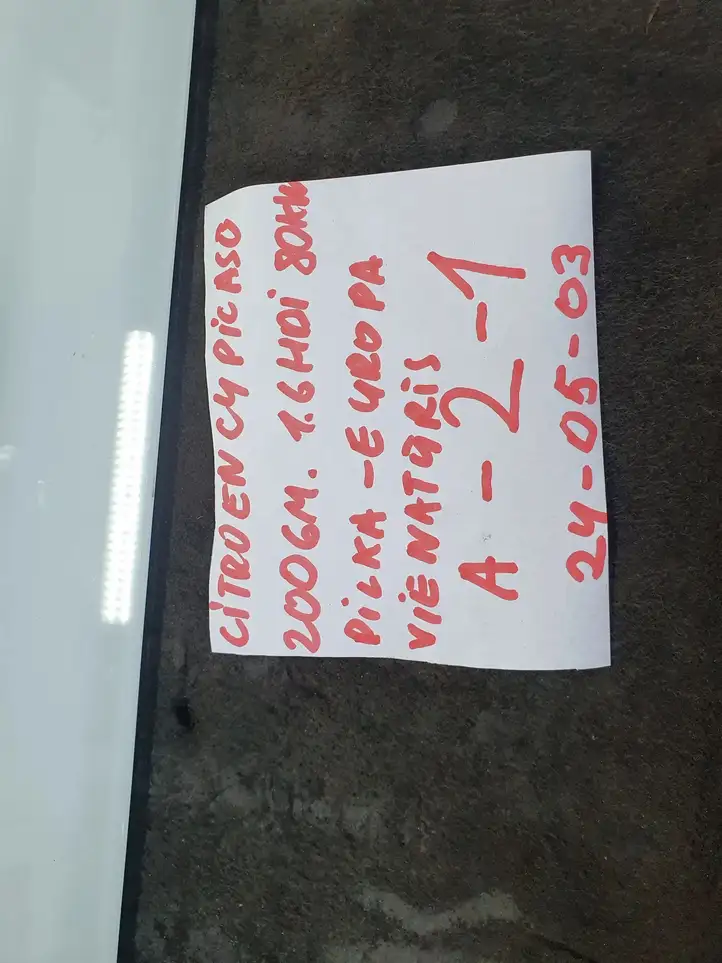 CiTROEN C4 PiCASO
2006M. 1.6 HDi 80KW
PiLKA - EUROPA
ViENATURiS
A - 2 - 1
24-05-03